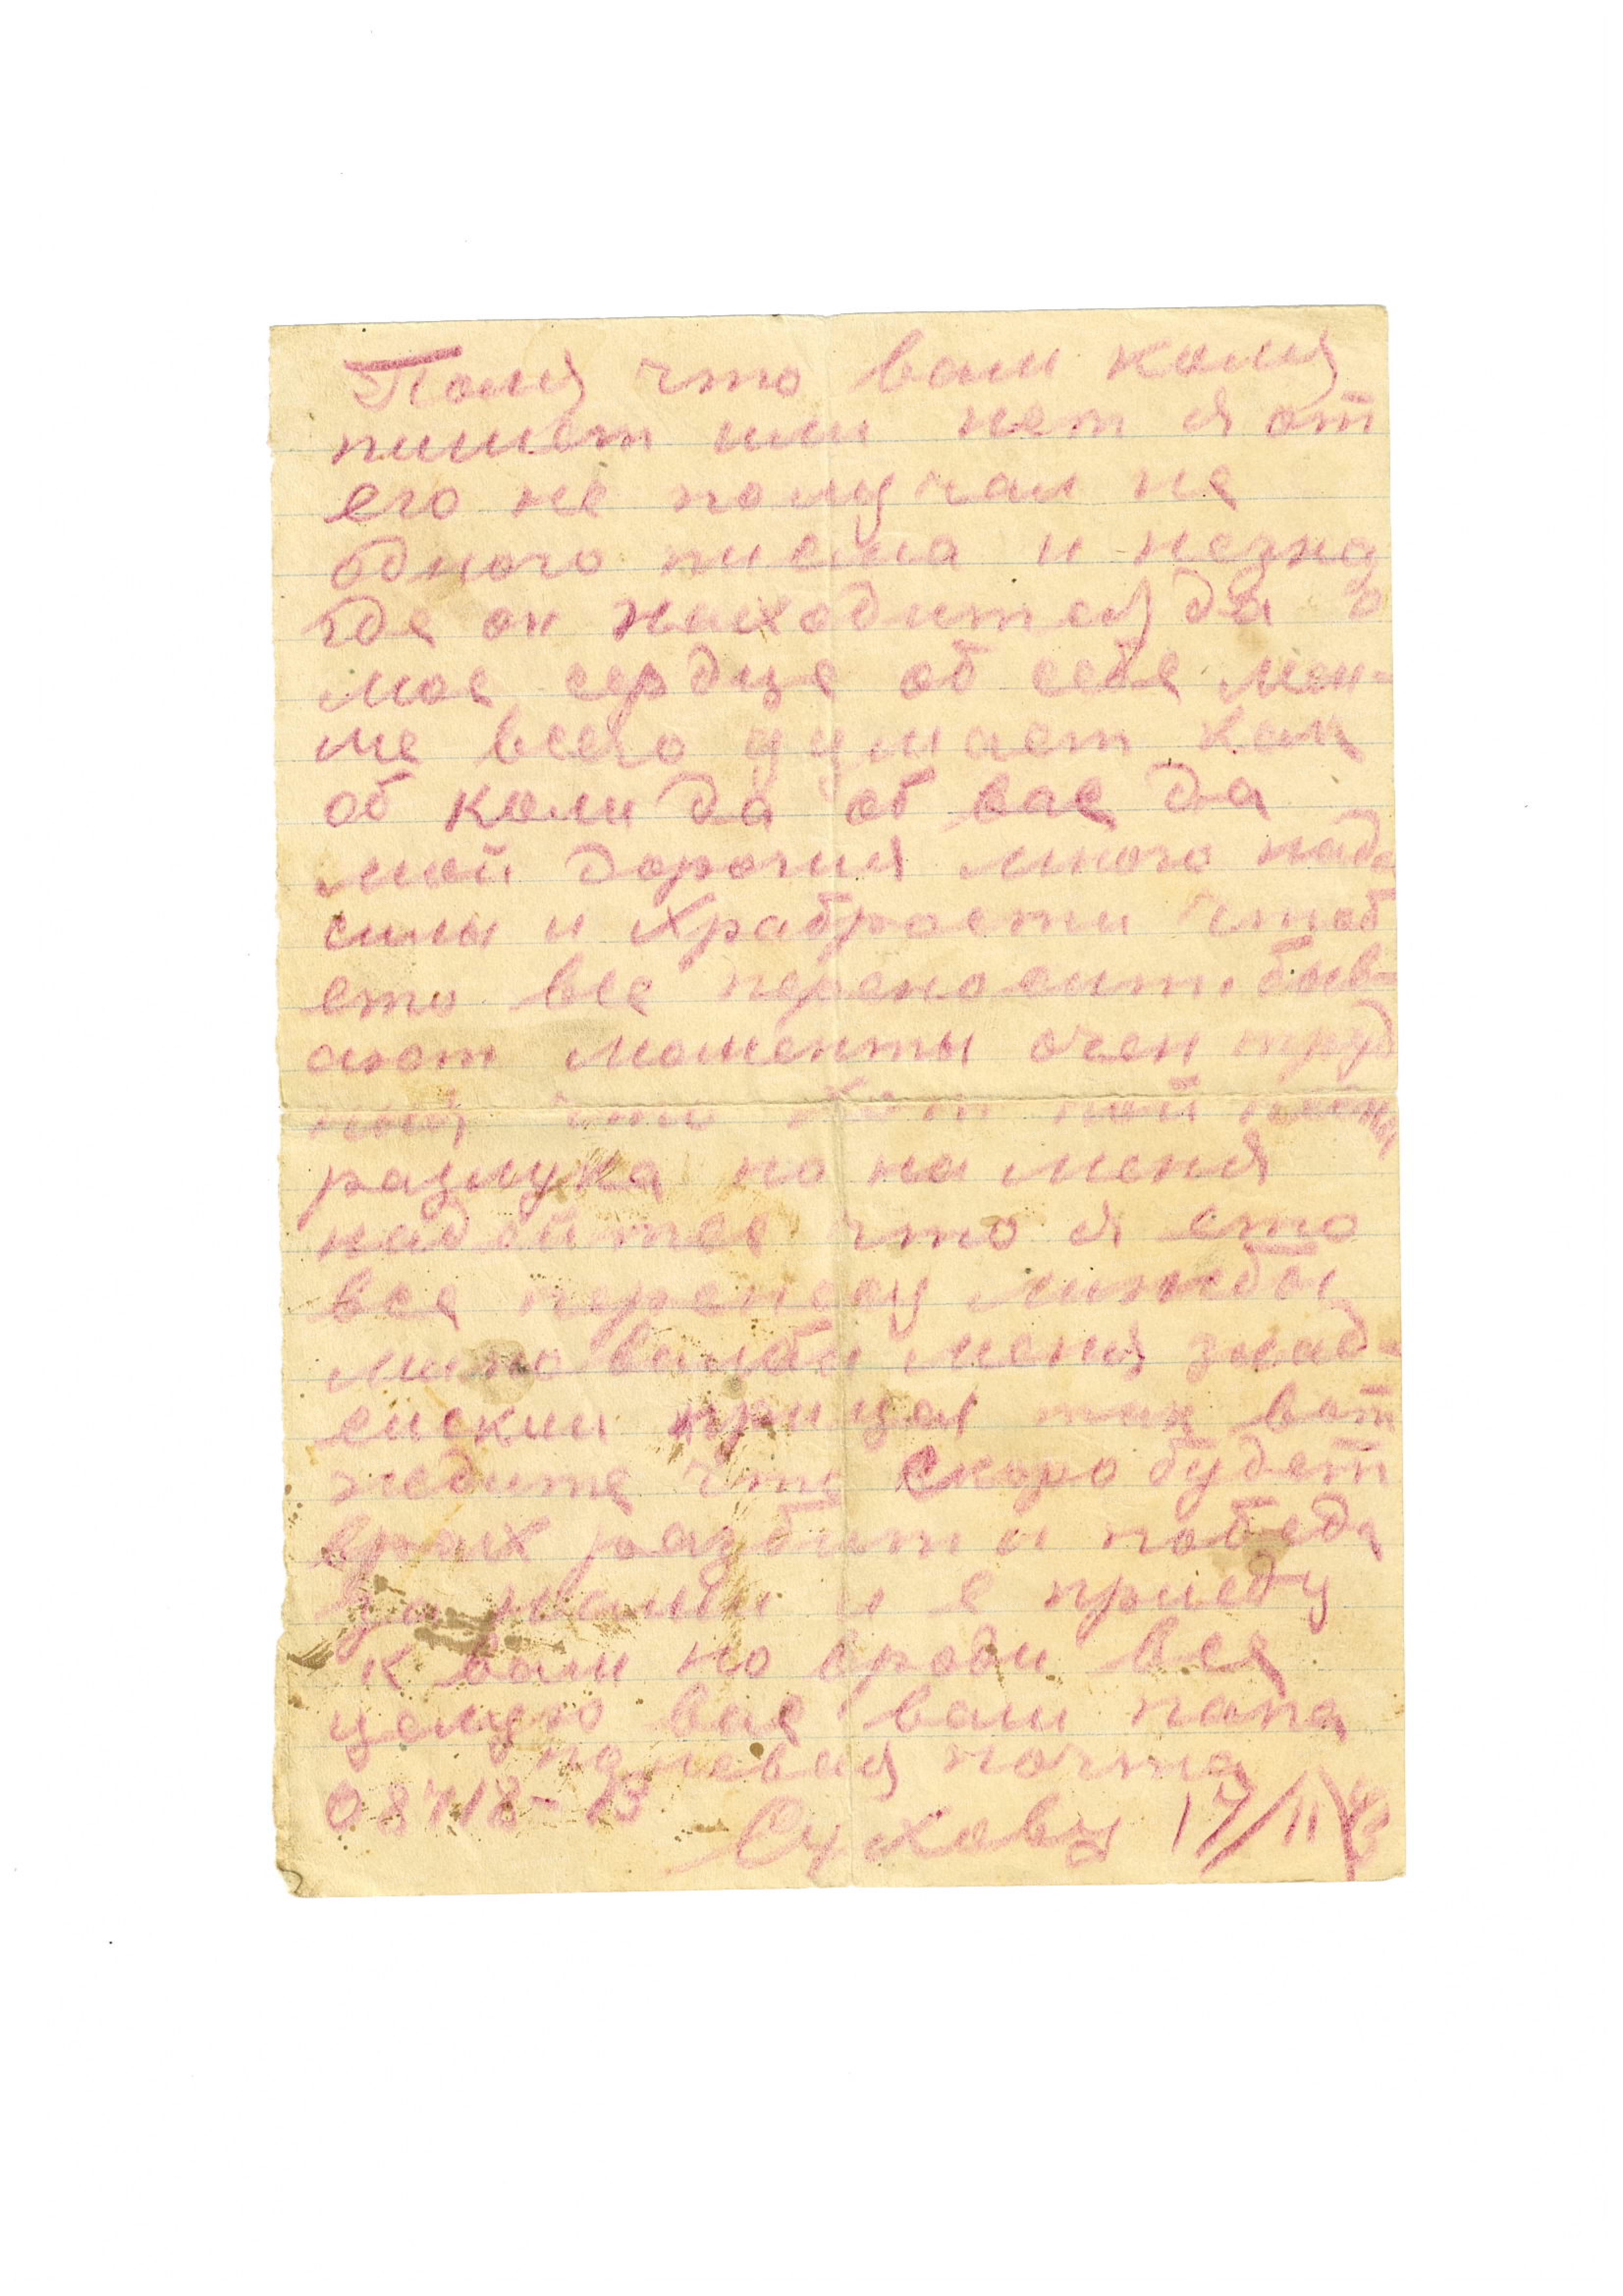 Поля что вам коля
пишет или нет я от
его не получал не
одного писма и незна
где он находится да
мое сердце об себе мен-
ше всего думает как
об коли да об вас да
мои дорогия много надо
силы и храбрости чтоб
ето все переносит. быв-
ают моменты очен труд
что
разлука но на меня
надейтес что я ето
все перенесу лишбы
мимо меня злад-
ейския так вот
ждите что скоро будет
врах разбит и победа
за нами и е приеду
к вам но вроди все
целую вас ваш папа
полевая почта
08718-В
Сухову 17/II 43